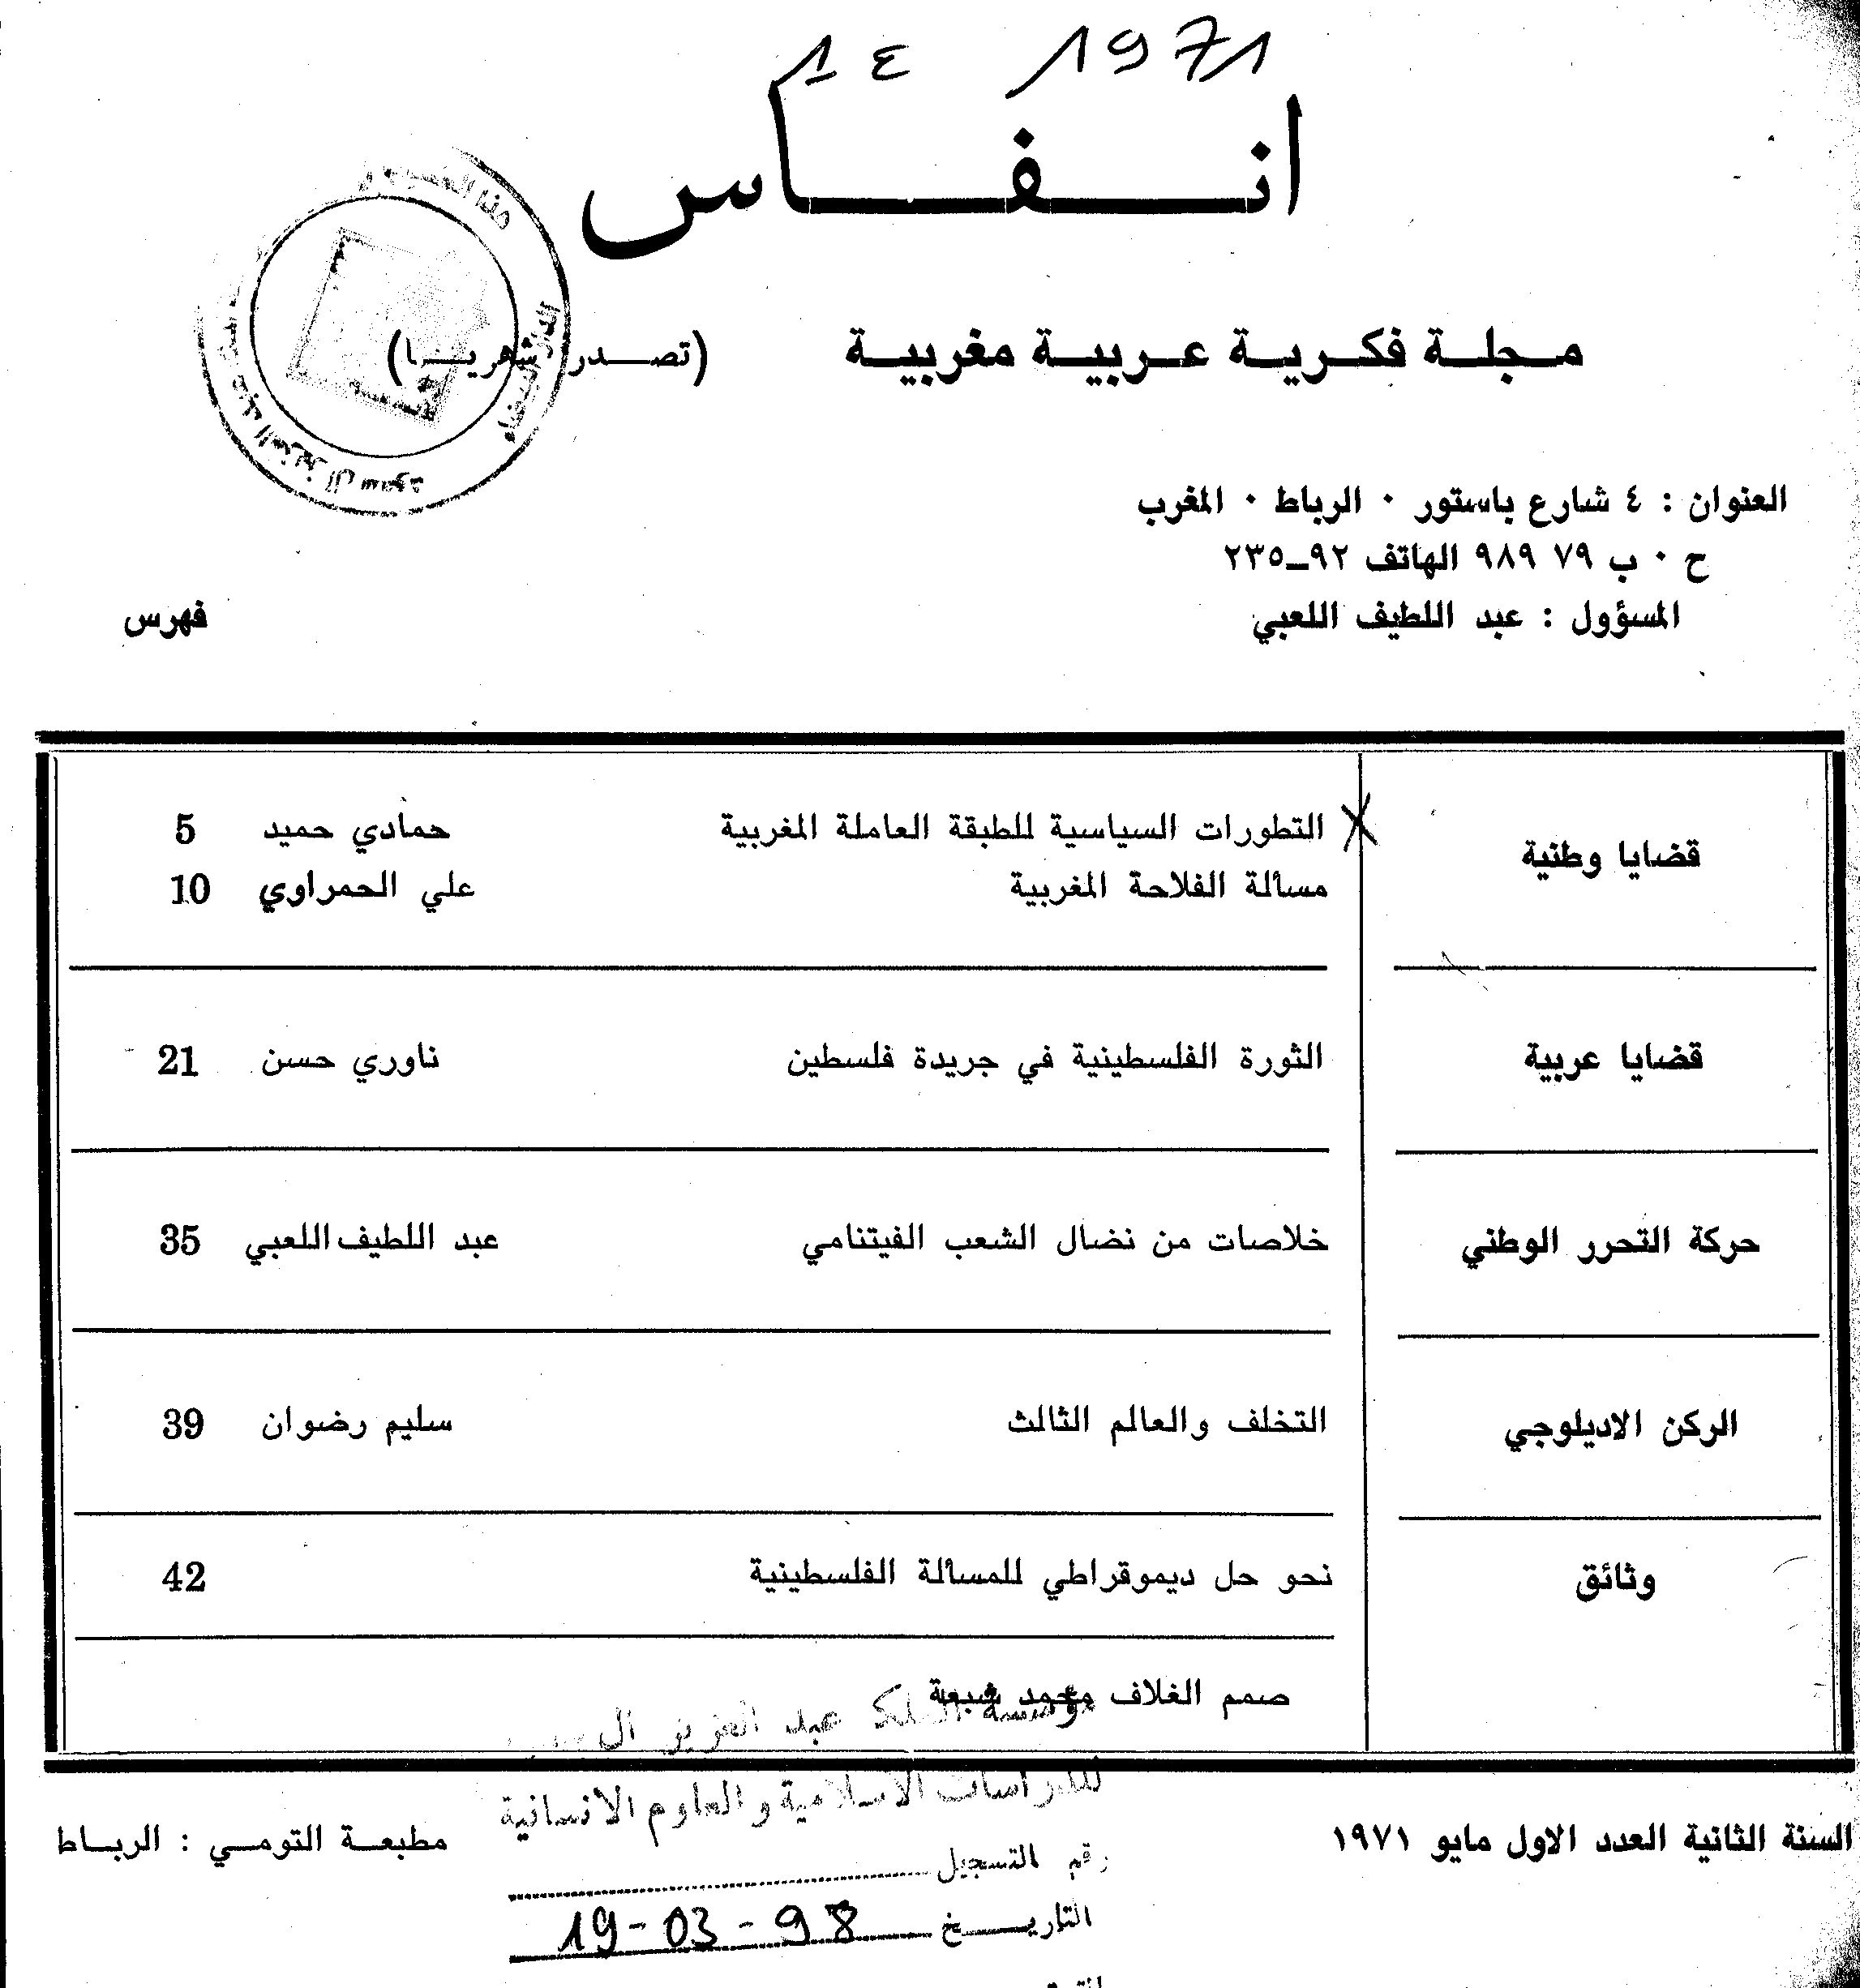 1 ع 1971
انفاس
مجلة فكرية عربية مغربية (تصدر شهريا)
العنوان : ٤ شارع باستور ٠ الرباط ٠ المغرب
ح ٠ ب ٧٩ ٩٨٩ الهاتف ٩٢ــ٢٣٥
المسؤول : عبد اللطيف اللعبي
فهرس
قضايا وطنية
التطورات السياسية للطبقة العاملة المغربية حمادي حميد 5
مسألة الفلاحة المغربية علي الحمراوي 10
قضايا عربية
الثورة الفلسطينية في جريدة فلسطين ناوري حسن 21
حركة التحرر الوطني
خلاصات من نضال الشعب الفيتنامي عبد اللطيف اللعبي 35
الركن الاديلوجي
التخلف والعالم الثالث سليم رضوان 39
وثائق
نحو حل ديموقراطي للمسألة الفلسطينية 42
صمم الغلاف محمد شبعة
مؤسسة الملك عبد العزيز ال
للدراسات الاسلامية والعلوم الانسانية
رقم التسجيل
التاريخ 19-03-98
السنة الثانية العدد الاول مايو ١٩٧١
مطبعة التومي : الرباط
الدار البيضاء
عبد العزيز ال سعود